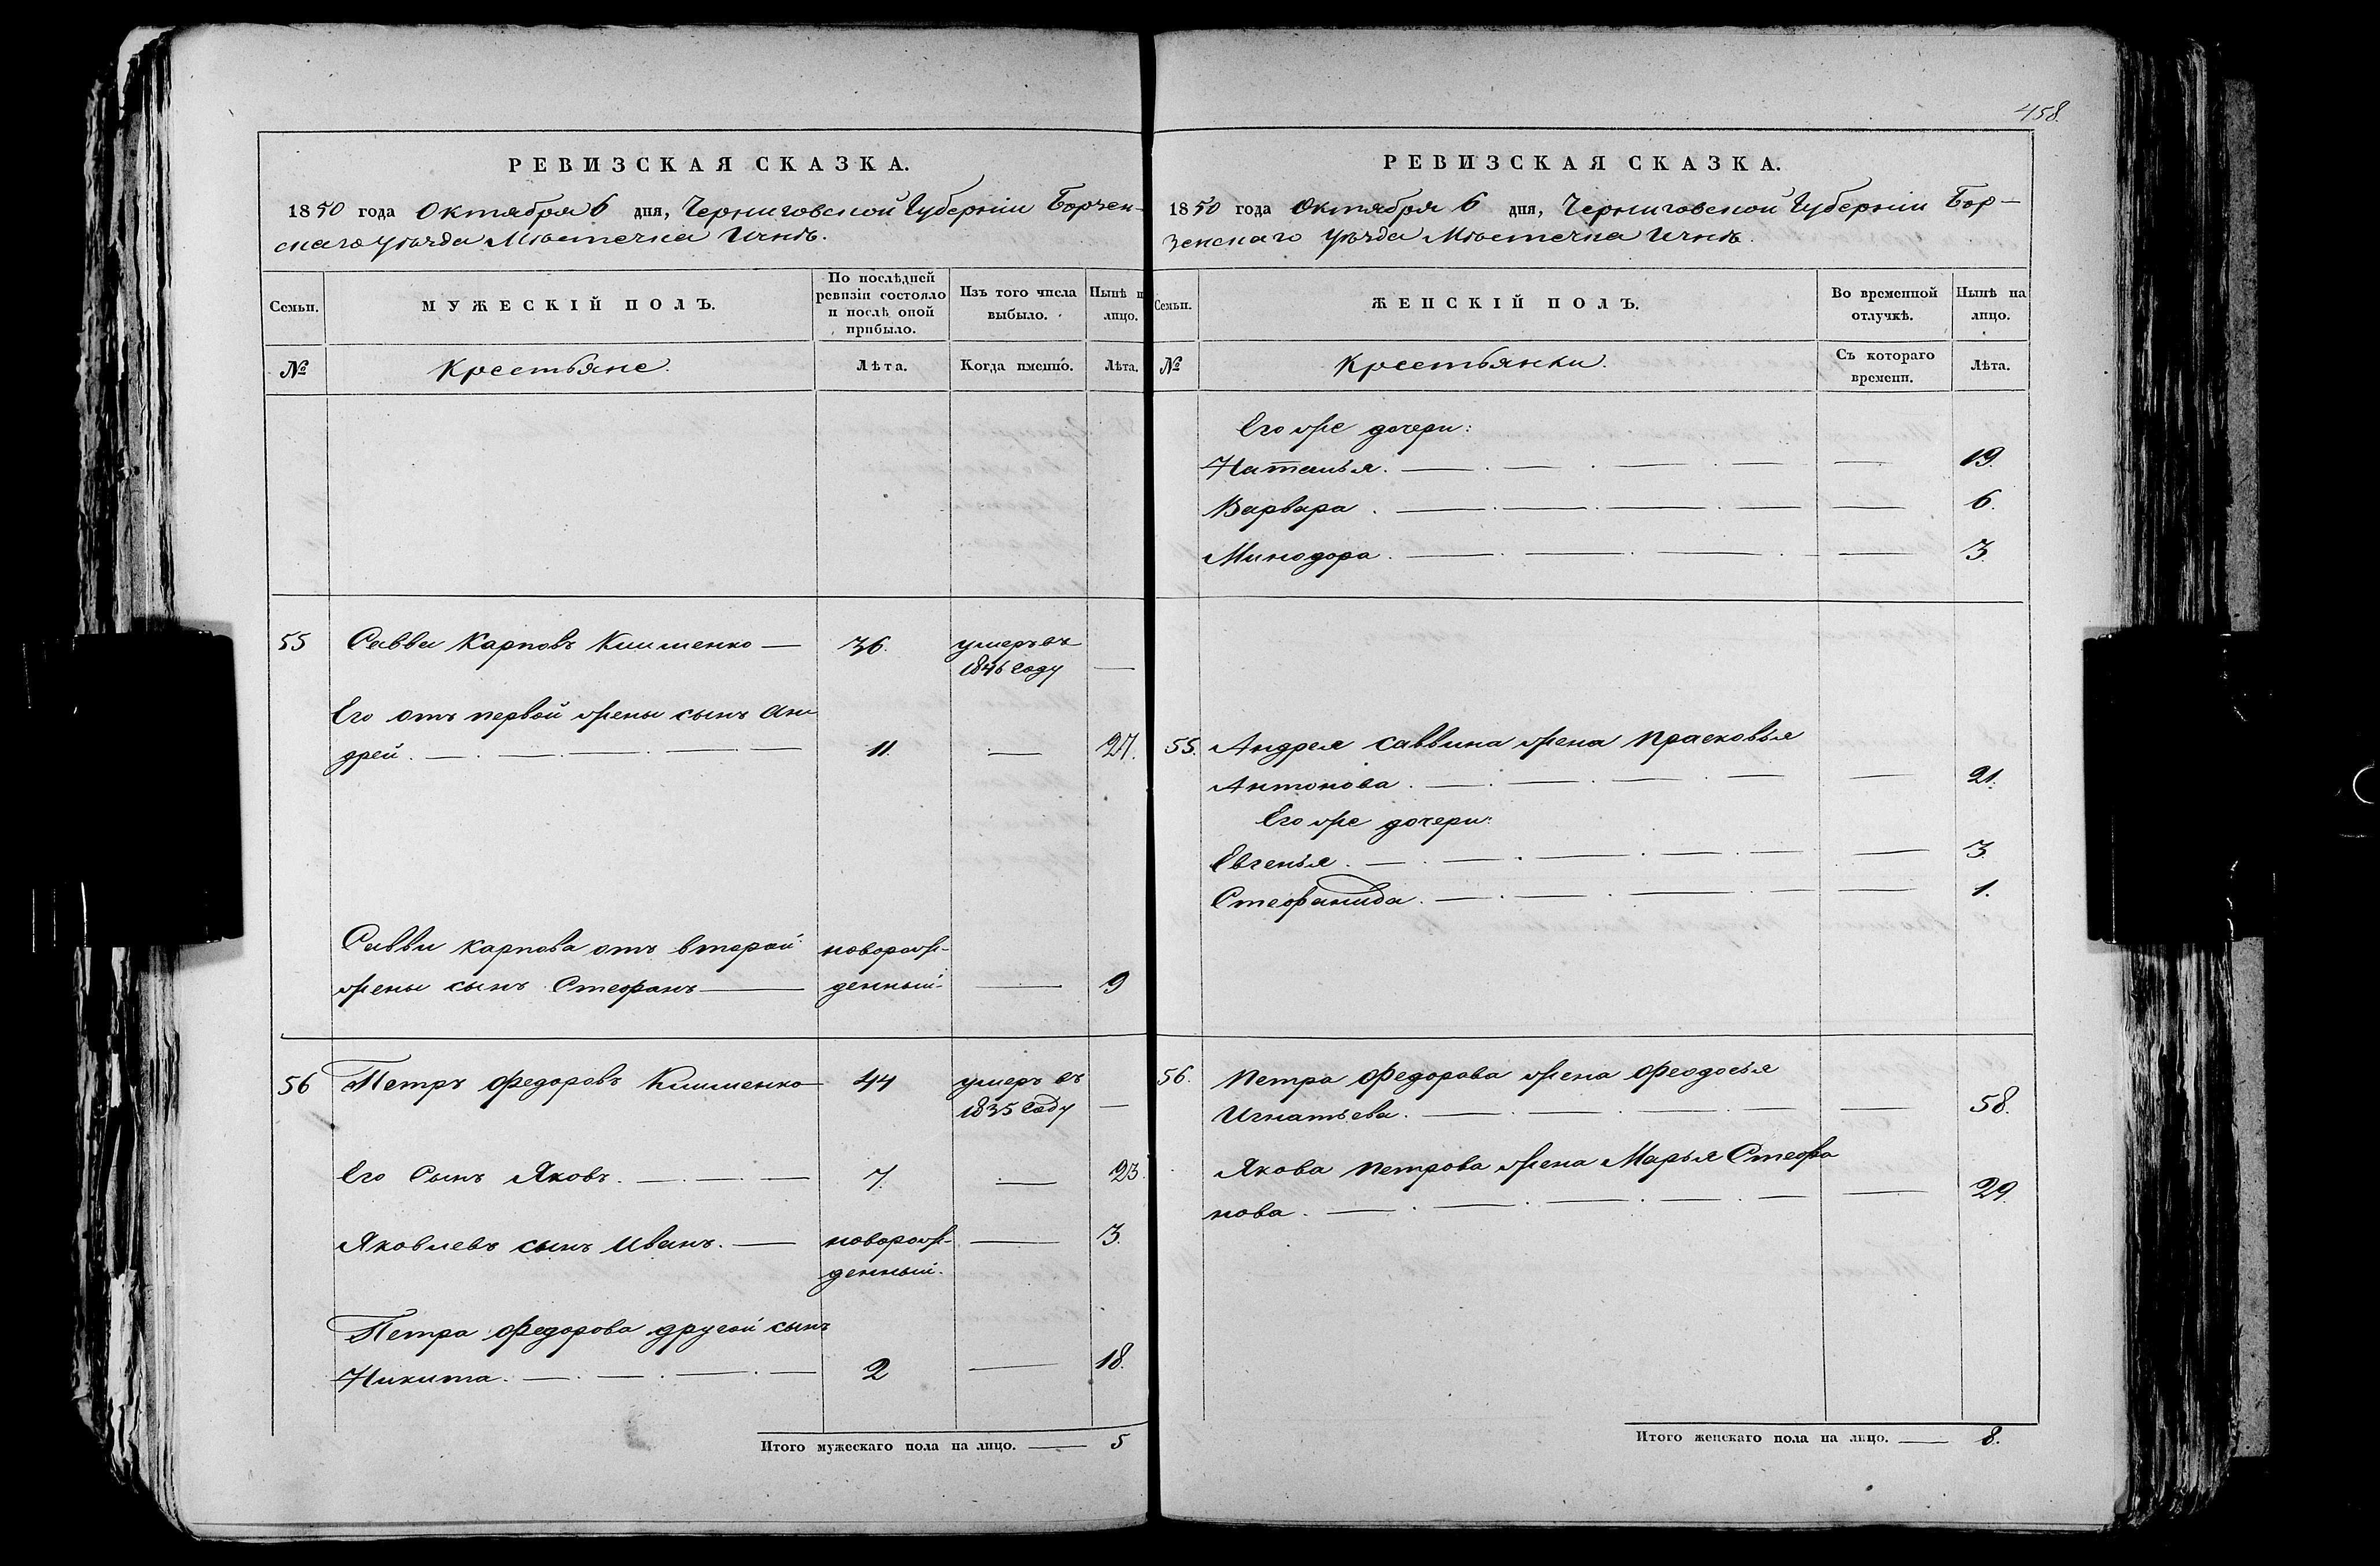 РЕВИЗСКАЯ СКАЗКА.
1850 года Октября 6 дня, Черниговской Губерніи Борзен-
скаго уѣзда Мѣстечка Ични.
Семьи. МУЖЕСКІЙ ПОЛЪ. По послѣдней ревизіи состояло и послѣ оной прибыло. Изъ того числа выбыло. Нынѣ на лицо.
№ Крестьяне. Лѣта. Когда именно. Лѣта.
55 Савва Карповъ Клименко — 36. умеръ въ
1846 году —
Его отъ первой жены сынъ Ан
дрей. — 11. — 27.
Саввы Карпова отъ второй новорож-
жены сынъ Стефанъ — денный — 9
56 Петръ Федоровъ Клименко 44 умеръ въ
1835 году —
Его Сынъ Яковъ. — 7. — 23.
Яковлевъ сынъ Иванъ. — новорож- — 3.
денный.
Петра Федорова другой сынъ
Никита. — 2 — 18.
Итого мужескаго пола на лицо. — 5
458.
РЕВИЗСКАЯ СКАЗКА.
1850 года Октября 6 дня, Черниговской Губерніи Бор-
зенскаго уѣзда Мѣстечка Ични.
Семьи. ЖЕНСКІЙ ПОЛЪ. Во временной отлучкѣ. Нынѣ на лицо.
№ Крестьянки. Съ котораго времени. Лѣта.
Его же дочери:
Наталья. — 19.
Варвара. — 6.
Минодора. — 3.
55. Андрея Саввина жена Прасковья
Антонова. — 21.
Его же дочери:
Евгенья. — 3.
Стефанида. — 1.
56. Петра Федорова жена Феодосья
Игнатьева. — 58.
Якова Петрова жена Марья Стефа
нова. — 29.
Итого женскаго пола на лицо. — 8.